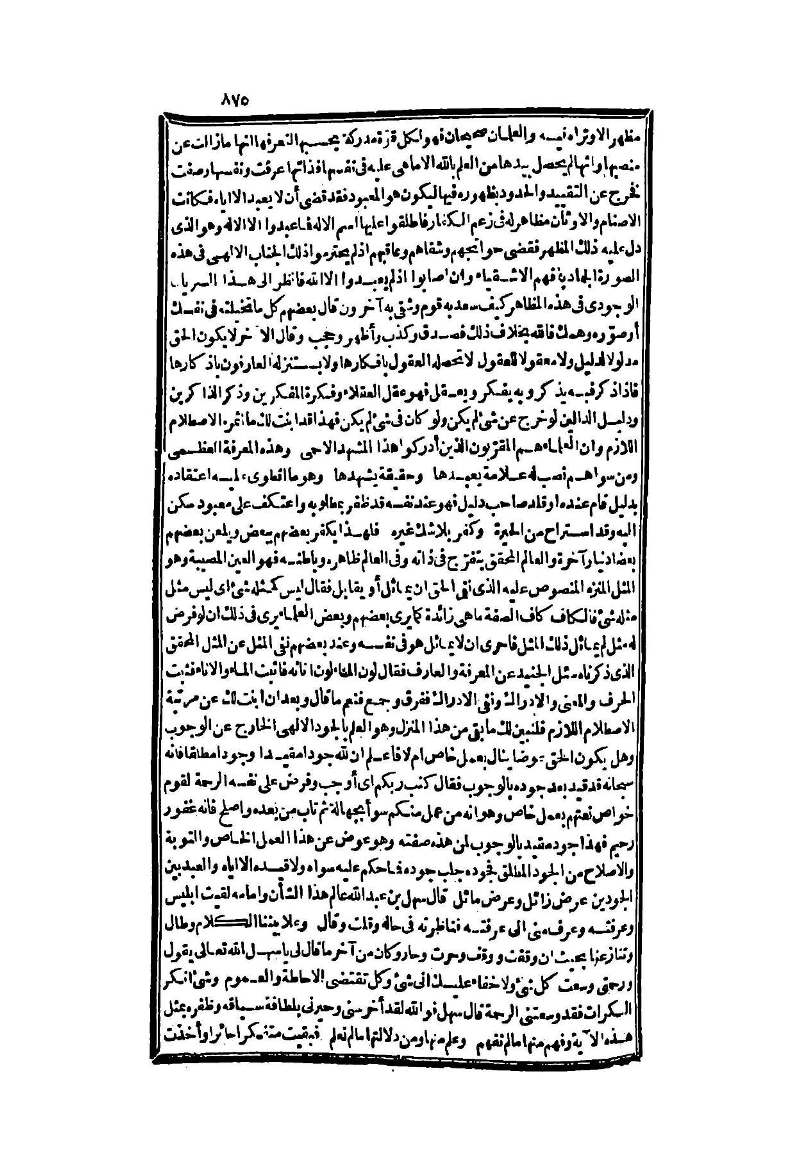 ٨٧٥
مظهر الاوتراه نفسه والعلمان صحيحان فهو لكل قوة مدركة بحسبها لتعرفه انها مازالت عن
منصبها وانها لم يحصل بيدها من العلم بالله الا ما هي عليه في نفسها فذاتها عرفت ونفسها وصفت
فخرج عن التقييد والحدود بظهوره فيها ليكون هو المعبود فقد قضى أن لا يعبد الا اياه فكانت
الاصنام والاوثان مظاهر له في زعم الكفار فاطلقوا عليها اسم الاله فما عبدوا الا الاله وهو الذي
دل عليه ذلك المظهر فقضى حوائجهم وسقاهم وعاقبهم اذ لم يحترموا ذلك الجناب الالهي في هذه
الصورة الجمادية فهم الاشقياء وان أصابوا اذ لم يعبدوا الا الله فانظر الى هذا السريان
الوجودي في هذه المظاهر كيف سعد به قوم وشقي به آخرون قال بعضهم كل ما تخيلته في نفسك
أو صوره وهمك فالله بخلاف ذلك فصدق وكذب وأظهر وحجب وقال الآخر لا يكون الحق
مدلولا لدليل ولا معقولا للعقول لا تحصله العقول بافكارها ولا يستنزله العارفون باذكارها
فاذا ذكر فبه يذكر وبه يفكر ويعقل فهو عقل العقلاء وفكرة المفكرين وذكر الذاكرين
ودليل الدالين لو خرج عن شئ لم يكن ولو كان في شئ لم يكن فهذا قد ابنت لك ما أثمره الاصطلام
اللازم وان العلماء هم المقربون الذين أدركوا هذا المشهد الاحمى وهذه المعرفة العظمى
ومن سواهم نصب له علامة يعبدها وحقيقة يشهدها وهو ما انطوى عليه اعتقاده
بدليل قام عنده أو قلد صاحب دليل فهو عند نفسه قد ظفر بمطلوبه واعتكف على معبود سكن
اليه وقد استراح من الحيرة وكفر بلا شك غيره فلهذا يكفر بعضهم ببعض ويلعن بعضهم
بعضا دنيا وآخرة والعالم المحقق يتفرج في ذاته وفي العالم ظاهره وباطنه فهو العين المصيبة وهو
المثل المنزه المنصوص عليه الذي نفى الحق ان يماثل أو يقابل فقال ليس كمثله شئ أي ليس مثل
مثله شئ فالكاف كاف الصفة ما هي زائدة كما يرى بعضهم وبعض العلماء يرى في ذلك ان لو فرض
له مثل لم يماثل ذلك المثل فاحرى ان لا يماثل هو في نفسه وعند بعضهم نفي المثل عن المثل المحقق
الذي ذكرناه سئل الجنيد عن المعرفة والعارف فقال لون الماء لون انائه فاثبت الماء والاناء فثبت
الحرف والمعنى والادراك ونفى الادراك ففرق وجمع فنعم ما قال وبعد ان ابنت لك عن مرتبة
الاصطلام اللازم فلنبين لك ما بقي من هذا المنزل وهو العلم بالجود الالهي الخارج عن الوجوب
وهل يكون الحق عوضا ينال بعمل خاص ام لا فاعلم ان لله جودا مقيدا وجودا مطلقا فانه
سبحانه قد قيد بعض جوده بالوجوب فقال كتب ربكم أي أوجب وفرض على نفسه الرحمة لقوم
خواص نعتهم بعمل خاص وهو انه من عمل منكم سوأ بجهالة ثم تاب من بعده واصلح فانه غفور
رحيم فهذا جود مقيد بالوجوب لمن هذه صفته وهو عوض عن هذا العمل الخاص والتوبة
والاصلاح من الجود المطلق فجوده جلب جوده فما حكم عليه سواه ولا قيده الا اياه والعبد بين
الجودين عرض زائل وعرض مائل قال سهل بن عبد الله عالم هذا الشأن وامامه لقيت ابليس
وعرفته وعرف مني اني عرفته فناظرته في حاله وقلت وقال وعلا بيننا الكلام وطال
وتنازعنا بحيث ان وقفت ووقف وحرت وحار وكان من آخر ما قال لي يا سهل الله تعالى يقول
ورحمتي وسعت كل شئ ولا خفاء عليك انني شئ وكل تقتضي الاحاطة والعموم وشئ انكر
النكرات فقد وسعتني الرحمة قال سهل فوالله لقد أخرسني وحيرني بلطافة سياقه وظفره بمثل
هذه الآية وفهم منها ما لم نفهم وعلم منها ومن دلالتها ما لم نعلم فبقيت متفكرا حائرا وأخذت